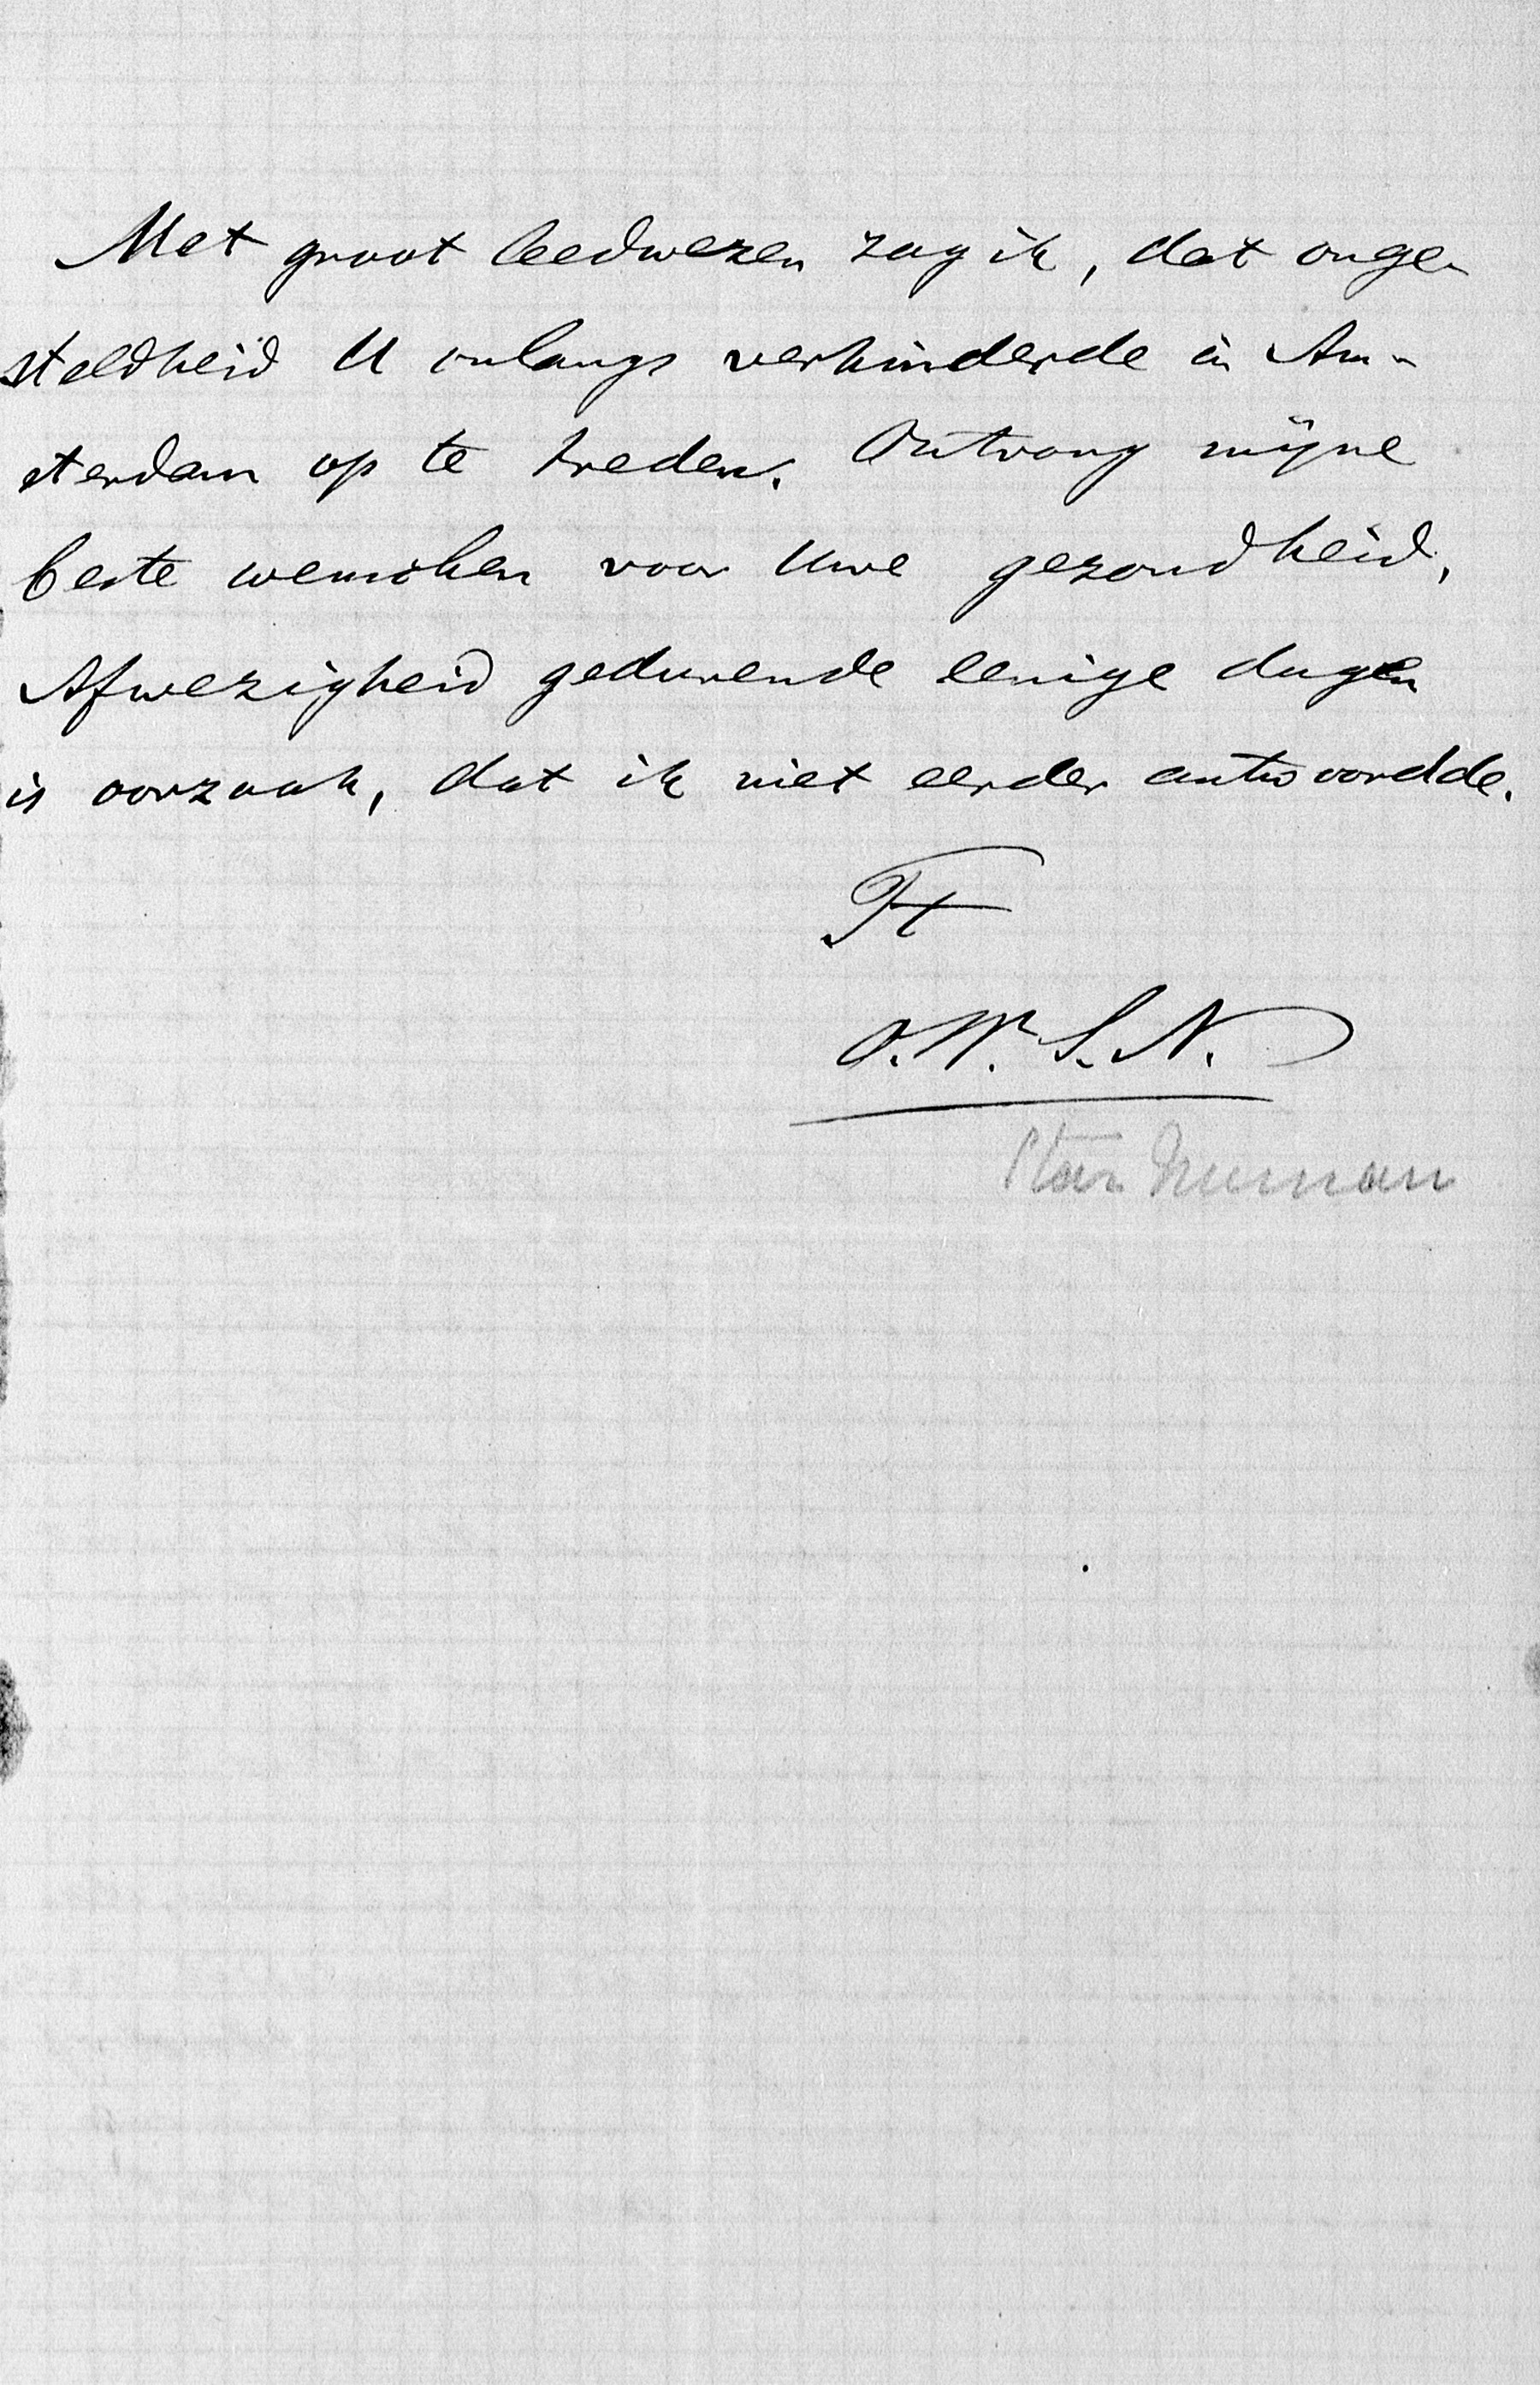 Met groot leedwezen zag ik, dat onge-
steldheid U onlangs verhinderde in Am-
sterdam op te treden. Ontvang mijne
beste wenschen voor Uwe gezondheid.
Afwezigheid gedurende eenige dagen
is oorzaak, dat ik niet eerder antwoordde.
Tt
O.W.S.N.
Star Numan